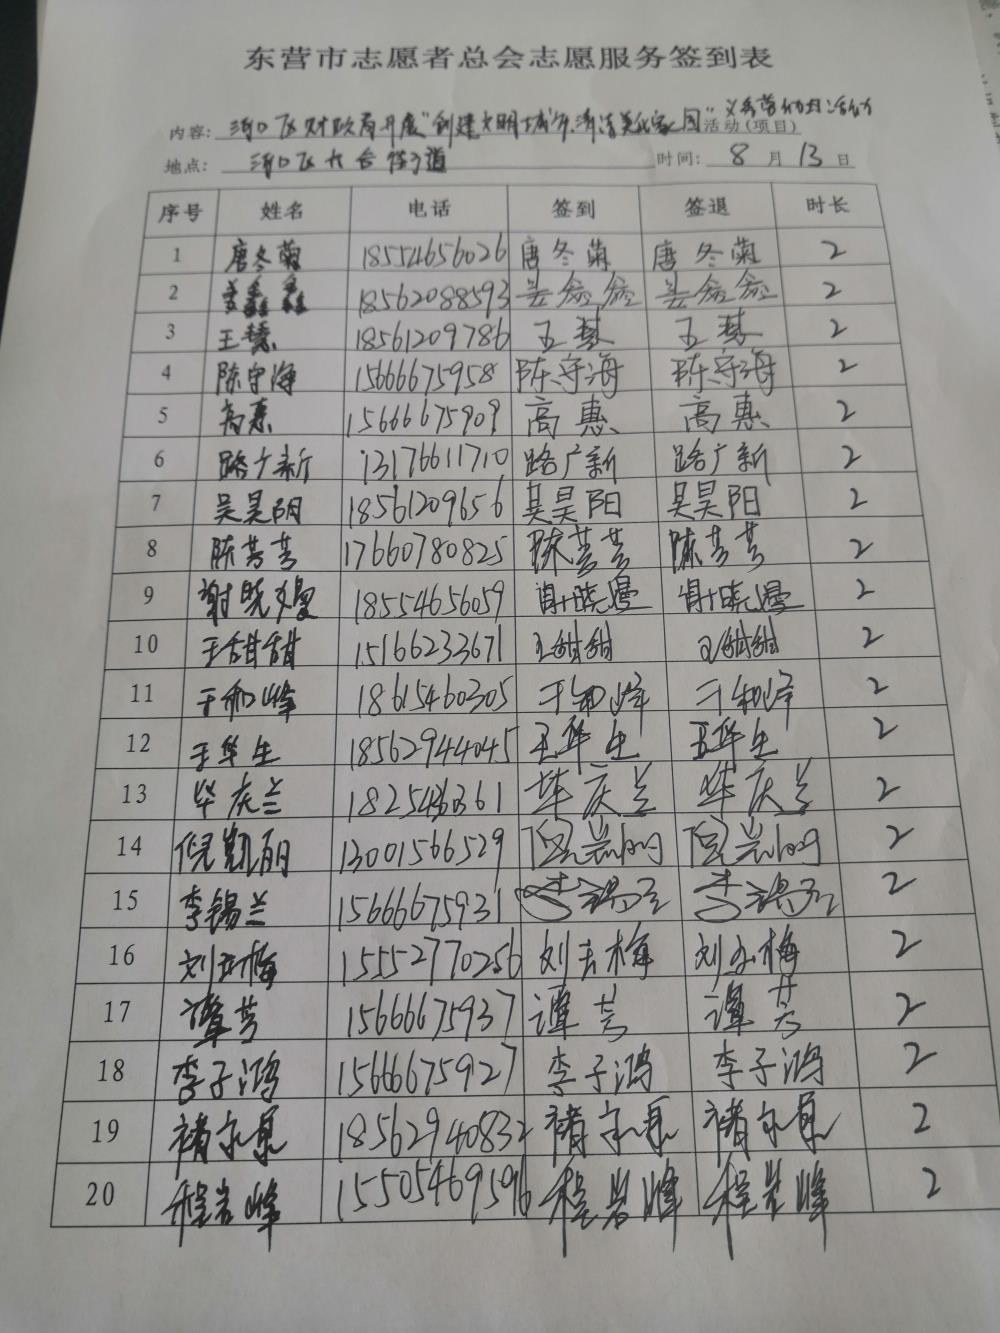 东营市志愿者总会志愿服务签到表
内容: 河口区财政局开展"创建文明城市,清洁美化家园"义务劳动日活动 活动(项目)
地点: 河口区六合街道 时间: 8 月 13 日
序号 姓名 电话 签到 签退 时长
1 唐冬菊 18554656026 唐冬菊 唐冬菊 2
2 姜鑫鑫 18562088593 姜鑫鑫 姜鑫鑫 2
3 王慧 18561209786 王慧 王慧 2
4 陈守海 15666675958 陈守海 陈守海 2
5 高惠 15666675909 高惠 高惠 2
6 路广新 13176611710 路广新 路广新 2
7 吴昊阳 18561209656 吴昊阳 吴昊阳 2
8 陈芳芳 17660780825 陈芳芳 陈芳芳 2
9 谢晓熳 18554656059 谢晓熳 谢晓熳 2
10 王甜甜 15166233671 王甜甜 王甜甜 2
11 于和峰 18615460305 于和峰 于和峰 2
12 王华生 18562944045 王华生 王华生 2
13 毕庆兰 182546361 毕庆兰 毕庆兰 2
14 倪凯丽 13001566529 倪凯丽 倪凯丽 2
15 李锡兰 15666675931 李锡兰 李锡兰 2
16 刘玉梅 15552770256 刘玉梅 刘玉梅 2
17 谭芳 15666675937 谭芳 谭芳 2
18 李子鸿 15666675927 李子鸿 李子鸿 2
19 褚永泉 18562940832 褚永泉 褚永泉 2
20 程岩峰 15505469596 程岩峰 程岩峰 2